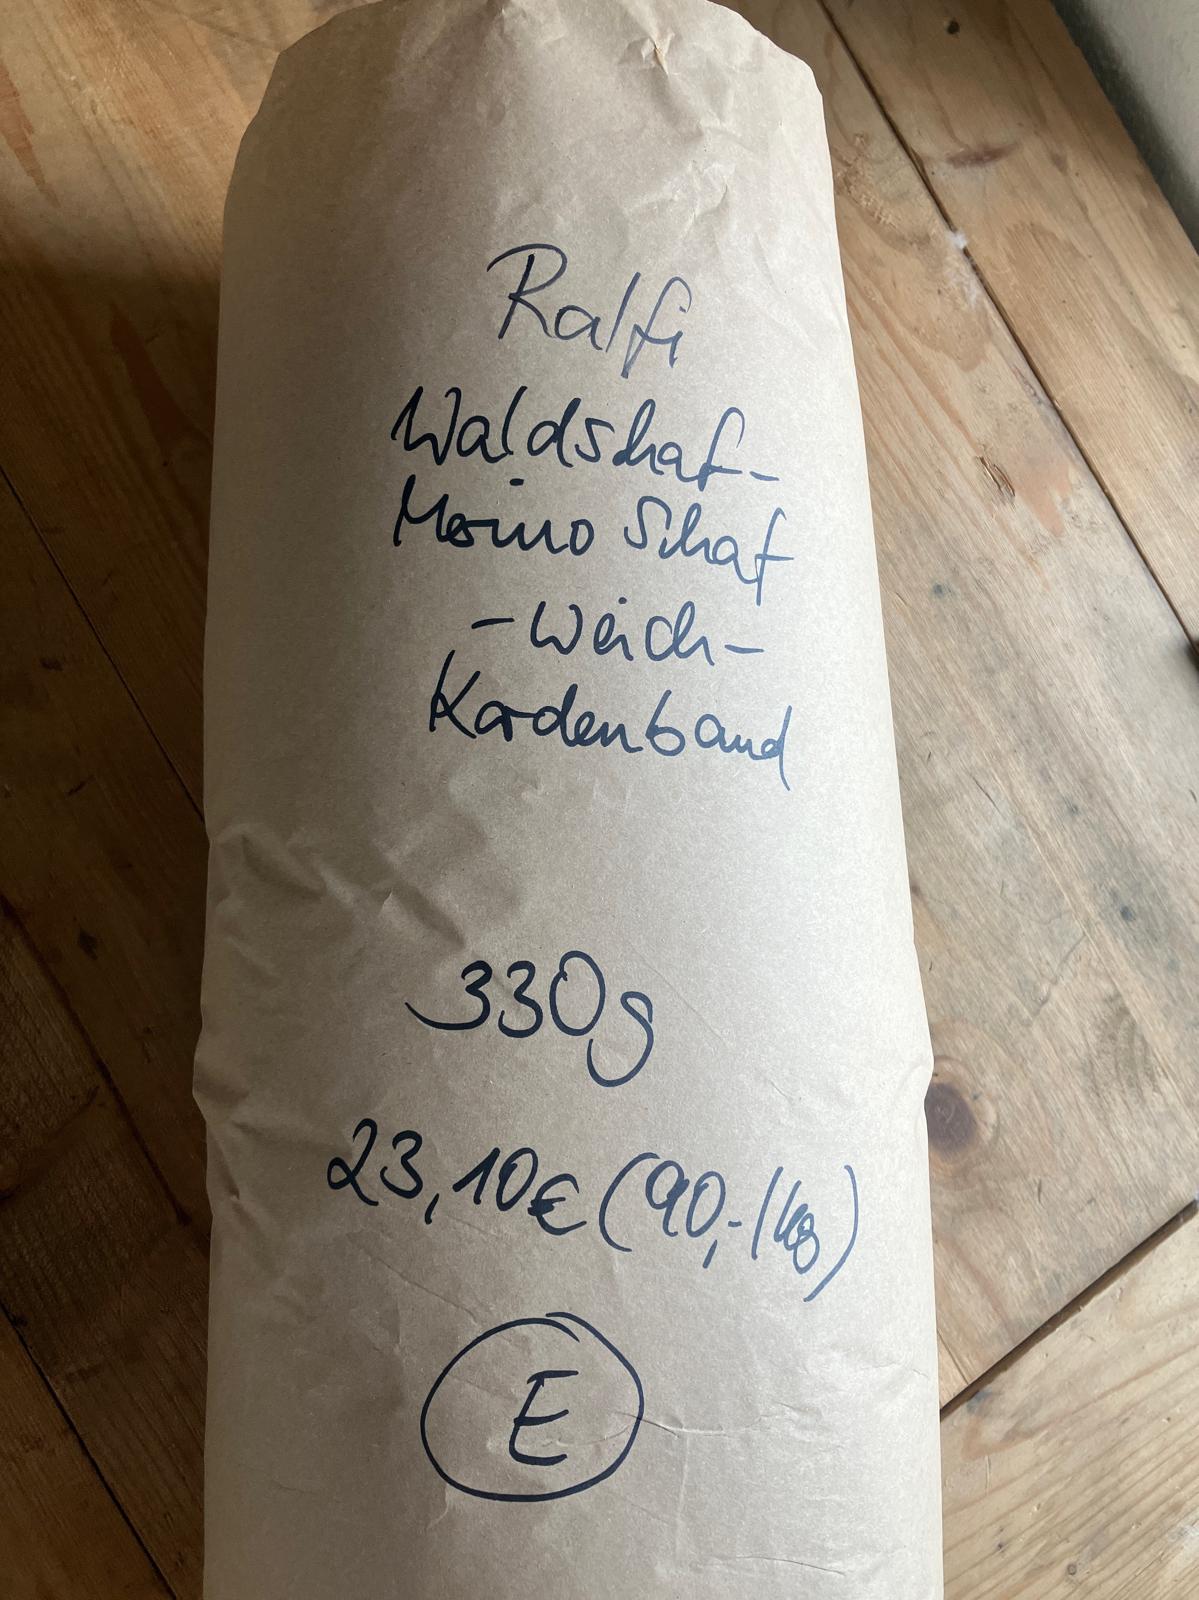 Ralfi
Waldschaf-
Merino Schaf
-weich-
Kardenband
330g
23,10€ (90,-/kg)
E